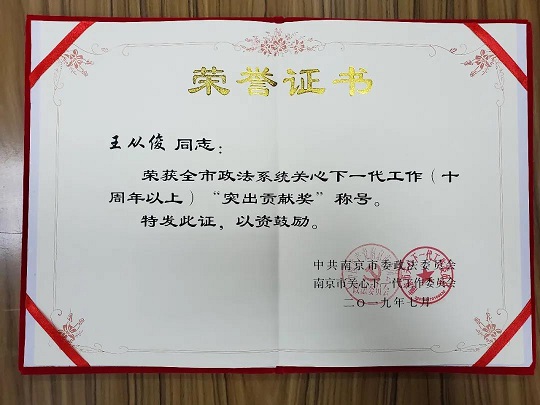 荣誉证书
王从俊 同志：
荣获全市政法系统关心下一代工作（十
周年以上）“突出贡献奖”称号。
特发此证，以资鼓励。
中共南京市委政法委员会
南京市关心下一代工作委员会
二〇一九年七月